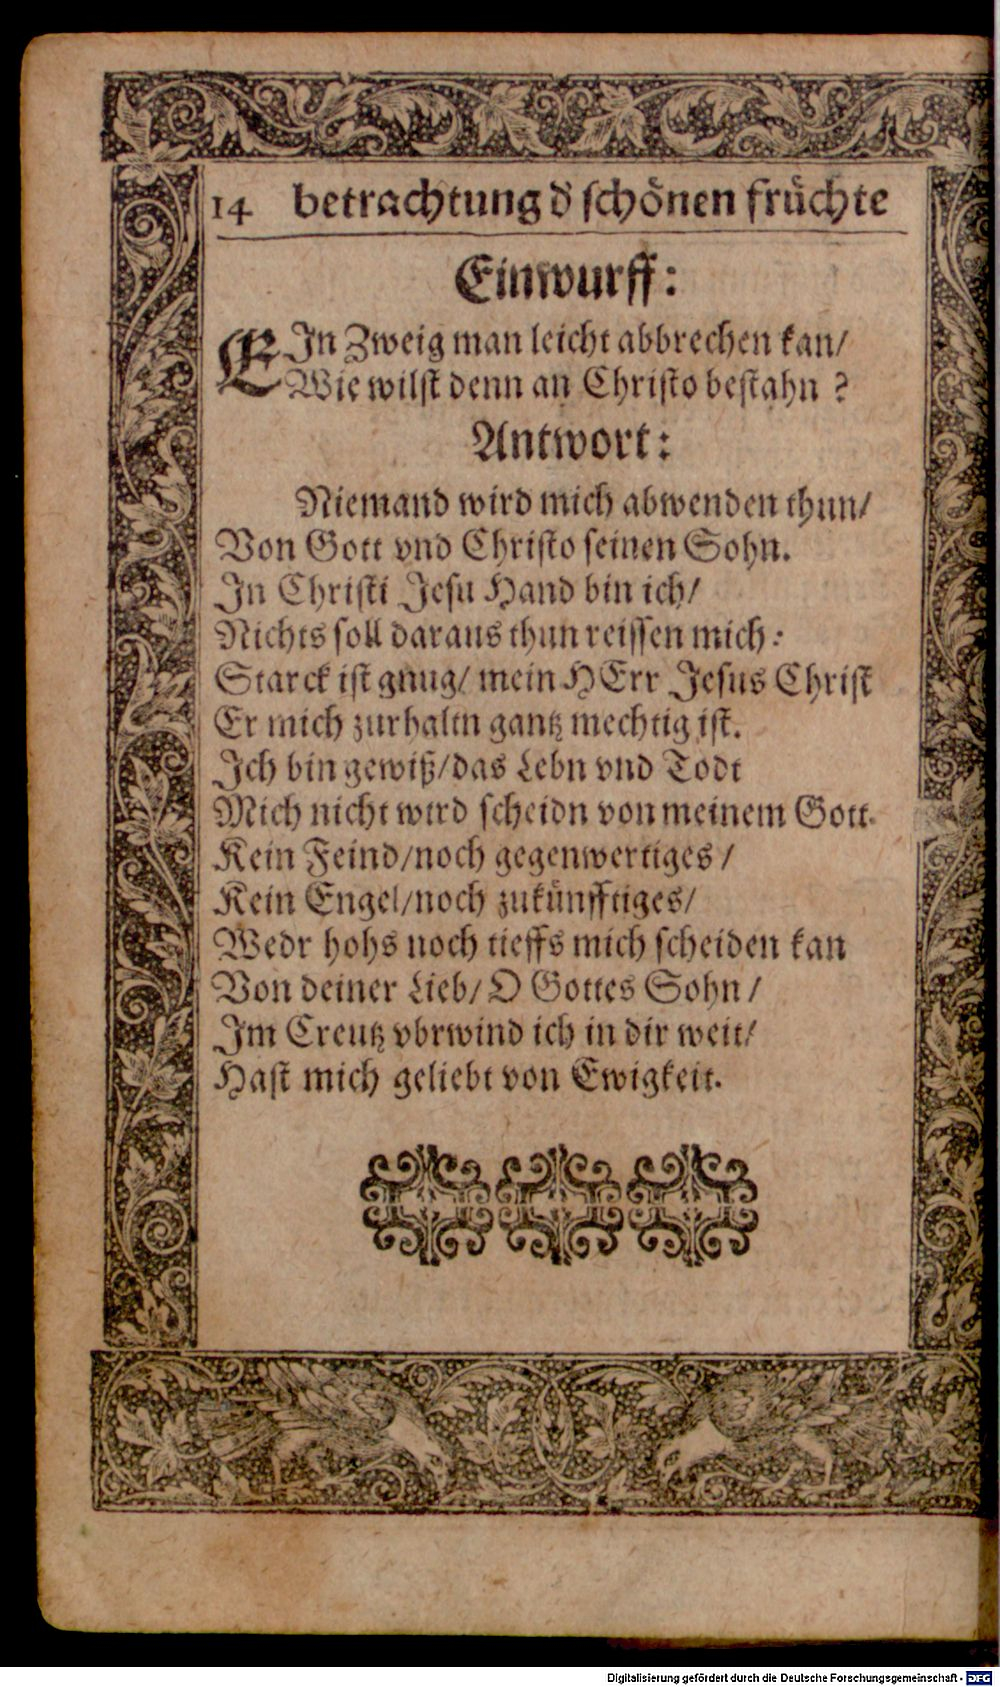 14 betrachtung d̕ schönen früchte
Einwurff:
EIn Zweig man leicht abbrechen kan/
Wie wilst denn an Christo bestahn ?
Antwort:
Niemand wird mich abwenden thun/
Von Gott vnd Christo seinen Sohn.
In Christi Jesu Hand bin ich/
Nichts soll daraus thun reissen mich:
Starck ist gnug/ mein HErr Jesus Christ
Er mich zurhaltn gantz mechtig ist.
Ich bin gewiß/das Lebn vnd Todt
Mich nicht wird scheidn von meinem Gott.
Kein Feind/noch gegenwertiges/
Kein Engel/noch zukünfftiges/
Wedr hohs noch tieffs mich scheiden kan
Von deiner Lieb/ O Gottes Sohn/
Im Creutz vbrwind ich in dir weit/
Hast mich geliebt von Ewigkeit.
Digitalisierung gefördert durch die Deutsche Forschungsgemeinschaft - DFG